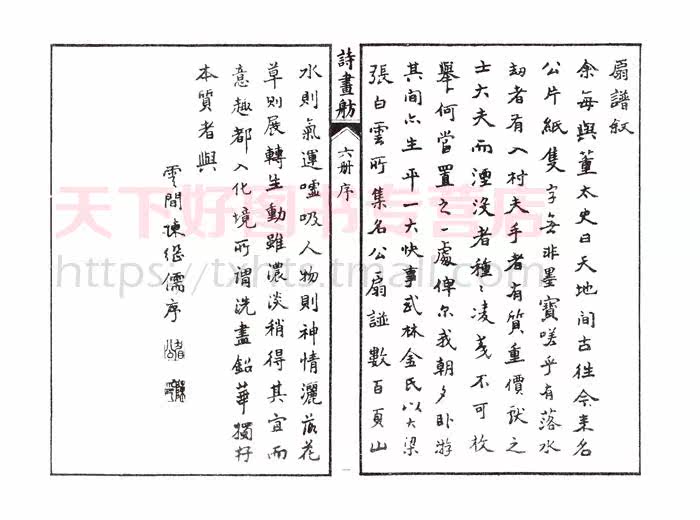 扇譜叙
余每與董太史曰天地間古往今来名
公片紙隻字無非墨寶嗟乎有落水
劫者有入村夫手者有質重價厭之
士大夫而湮没者種〻凌不可枚
舉何當置之一處俾尔我朝夕卧游
其間亦生平一大快事武林金氏以大梁
張白雲所集名公扇譜數百頁山
詩畫舫
六册 序
一
水則氣運噓吸人物則神情灑落花
草則展轉生動雖濃淡稍得其宜而
意趣都入化境所謂洗盡鉛華獨存
本質者與
雲間陳繼儒序
天下好图书专营店
https://txhts.tmall.com/